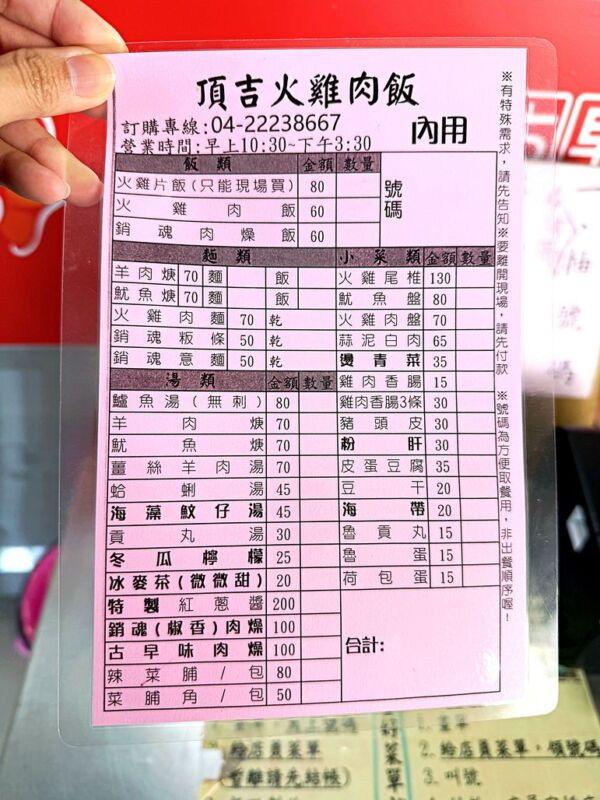 頂吉火雞肉飯
訂購專線:04-22238667
營業時間:早上10:30~下午3:30
內用
飯類 金額 數量
火雞片飯(只能現場買) 80
火雞肉飯 60
銷魂肉燥飯 60
號碼
麵類
羊肉焿 70 麵 飯
魷魚焿 70 麵 飯
火雞肉麵 70 乾
銷魂粄條 50 乾
銷魂意麵 50 乾
湯類 金額 數量
鱸魚湯(無刺) 80
羊肉焿 70
魷魚焿 70
薑絲羊肉湯 70
蛤蜊湯 45
海藻魰仔湯 45
貢丸湯 30
冬瓜檸檬 25
冰麥茶(微微甜) 20
特製紅蔥醬 200
銷魂(椒香)肉燥 100
古早味肉燥 100
辣菜脯/包 80
菜脯角/包 50
小菜類 金額 數量
火雞尾椎 130
魷魚盤 80
火雞肉盤 70
蒜泥白肉 65
燙青菜 35
雞肉香腸 15
雞肉香腸3條 30
豬頭皮 30
粉肝 30
皮蛋豆腐 35
豆干 20
海帶 20
魯貢丸 15
魯蛋 15
荷包蛋 15
合計:
※有特殊需求,請先告知※要離開現場,請先付款 ※號碼為方便取餐用,非出餐順序喔!
給店員菜單
2. 給店員菜單,領號碼
3. 叫號